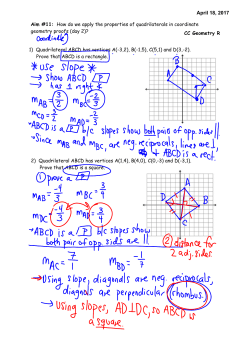 April 18, 2017
Aim #11: How do we apply the properties of quadrilaterals in coordinate
geometry proofs (day 2)? CC Geometry R
Coordinate
1) Quadrilateral ABCD has vertices A(-3,2), B(-1,5), C(5,1) and D(3,-2).
Prove that ABCD is a rectangle.
* use slope *
→ show ABCD /P/
→ has 1 right ∡
mAB = 3/2 mBC = -2/3
mCD = 3/2 mAD = -2/3
• ABCD is a /P/ b/c slopes show both pair of opp. sides //
• Since mAB and mBC are neg. reciprocals, lines are ⊥
↳ ABCD is a rect.
2) Quadrilateral ABCD has vertices A(1,4), B(4,0), C(0,-3) and D(-3,1).
Prove that ABCD is a square.
① prove a /P/
mAB = -4/3 mBC = 3/4
mDC = -4/3 mAD = 3/4
• ABCD is a /P/ b/c slopes show
both pair of opp. sides are //
② distance for
2 adj. sides
mAC = 7/1 mBD = -1/7
→ Using slope, diagonals are neg. reciprocals,
diagonals are perpendicular (rhombus.)
→ Using slopes, AD⊥DC, so ABCD is
a square